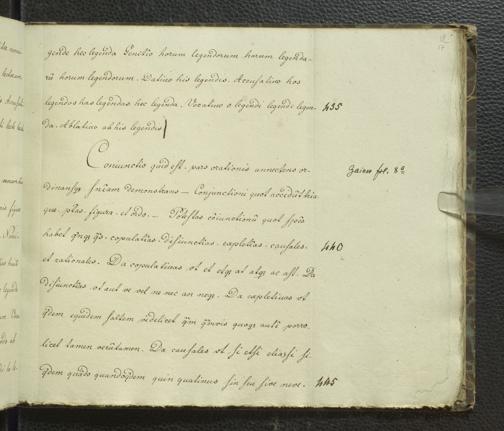 gende hec legenda Genitio horum legendorum harum legenda-
rū horum legendorum. Datiuo his legendis. Accusatiuo hos
legendos has legendas hec legenda. Vocatiuo o legendi legende legen- 435
da. Ablatiuo ab his legendis
Coniunctio quid est. pars orationis annectens or- Zainer fol. 8ª
dinansq3 snīam demonstrans — Conjunctioni quot accedūt tria
que. ptās figura. et ordo. — Ptās coniunctionū quot spēs
habet qnq3 qs. copulatias disiunctias. expletias. causales. 440
et rationales. Da copulatiuas ut et etq3 at atq3 ac ast. Da
disiunctias ut aut ve vel ne nec an neq3. Da expletiuas ut
qdem equidem saltem videlicet qm qmvis quoq3 autē porro.
licet tamen verūtamen. Da causales ut si etsi etiamsi si
qdem quādo quandoqdem quin quatinus sin seu sive neve. 445